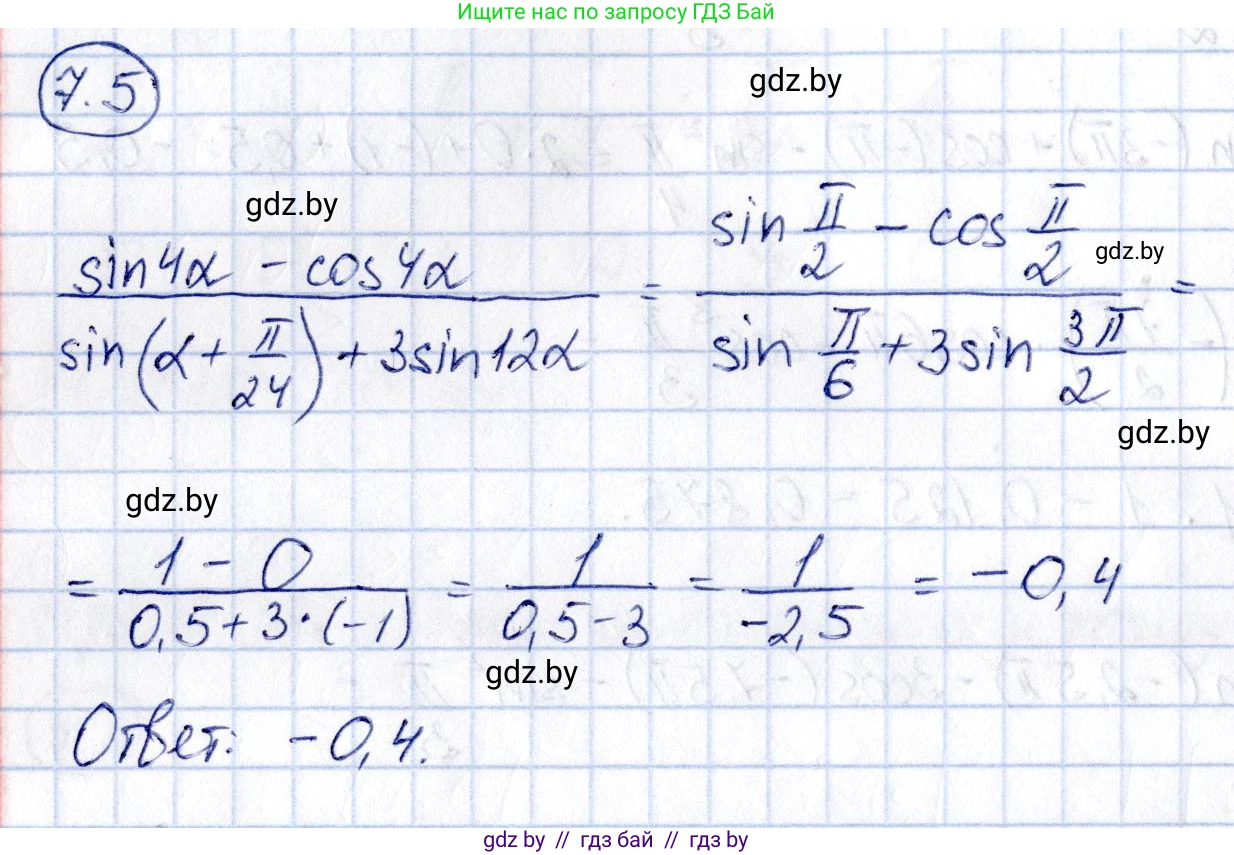 Ищите нас по запросу ГДЗ Бай
7.5
gdz.by
gdz.by
(sin4α - cos4α) / (sin(α + π/24) + 3sin12α) = (sin π/2 - cos π/2) / (sin π/6 + 3sin 3π/2) =
gdz.by
gdz.by
gdz.by
= (1 - 0) / (0,5 + 3·(-1)) = 1 / (0,5 - 3) = 1 / (-2,5) = -0,4
gdz.by
Ответ: -0,4.
gdz.by // гдз бай // гдз by